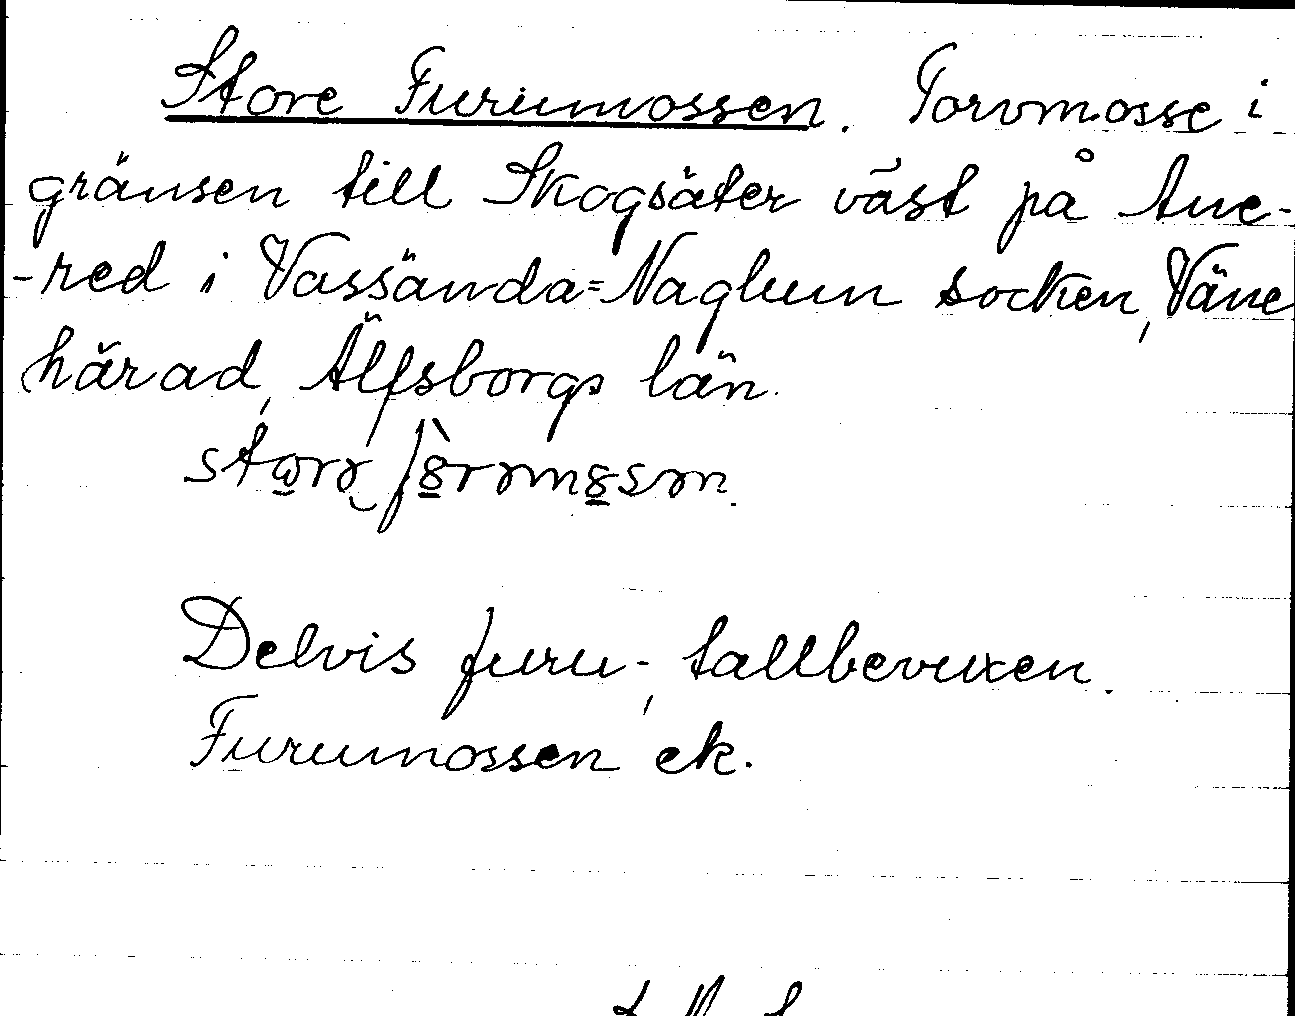 Store Furumossen. Torvmosse i
gränsen till Skogsäter väst på Ane-
-red i Vassända=Naglum socken, Väne
härad, Älfsborgs län.
Delvis furu-, tallbevuxen.
Furumossen ek.